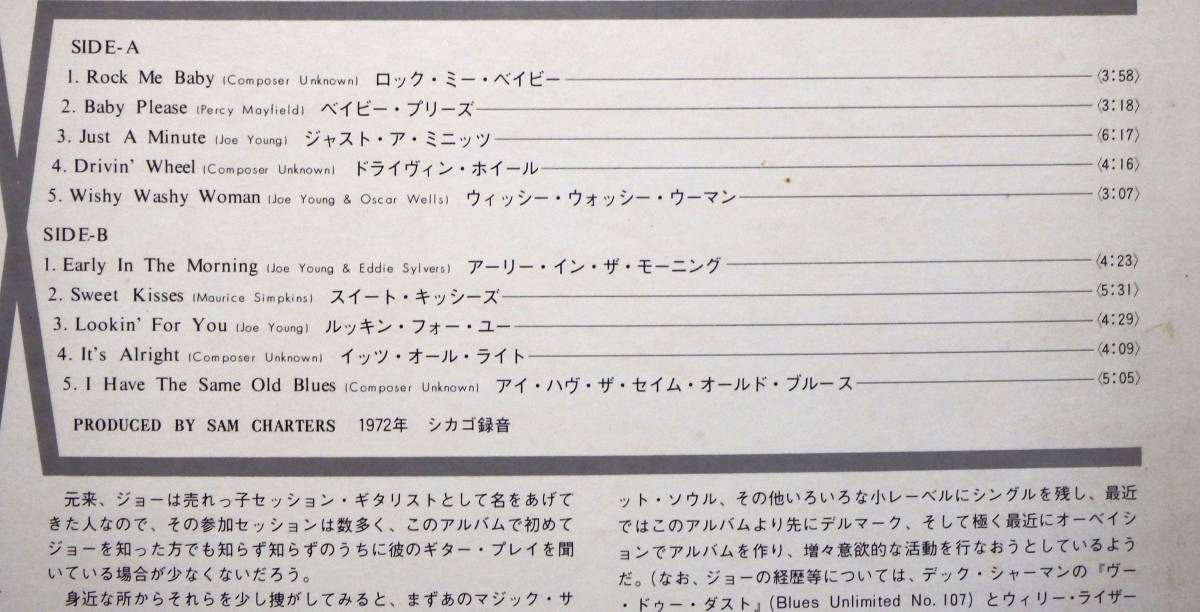 SIDE-A
1. Rock Me Baby (Composer Unknown) ロック・ミー・ベイビー 〈3:58〉
2. Baby Please (Percy Mayfield) ベイビー・プリーズ 〈3:18〉
3. Just A Minute (Joe Young) ジャスト・ア・ミニッツ 〈6:17〉
4. Drivin' Wheel (Composer Unknown) ドライヴィン・ホイール 〈4:16〉
5. Wishy Washy Woman (Joe Young & Oscar Wells) ウィッシー・ウォッシー・ウーマン 〈3:07〉
SIDE-B
1. Early In The Morning (Joe Young & Eddie Sylvers) アーリー・イン・ザ・モーニング 〈4:23〉
2. Sweet Kisses (Maurice Simpkins) スイート・キッシーズ 〈5:31〉
3. Lookin' For You (Joe Young) ルッキン・フォー・ユー 〈4:29〉
4. It's Alright (Composer Unknown) イッツ・オール・ライト 〈4:09〉
5. I Have The Same Old Blues (Composer Unknown) アイ・ハヴ・ザ・セイム・オールド・ブルース 〈5:05〉
PRODUCED BY SAM CHARTERS 1972年 シカゴ録音
元来、ジョーは売れっ子セッション・ギタリストとして名をあげて
きた人なので、その参加セッションは数多く、このアルバムで初めて
ジョーを知った方でも知らず知らずのうちに彼のギター・プレイを聞
いている場合が少なくないだろう。
身近な所からそれらを少し捜がしてみると、まずあのマジック・サ
ット・ソウル、その他いろいろな小レーベルにシングルを残し、最近
ではこのアルバムより先にデルマーク、そして極く最近にオーベイシ
ョンでアルバムを作り、増々意欲的な活動を行なおうとしているよう
だ。(なお、ジョーの経歴等については、デック・シャーマンの『ヴー
・ドゥー・ダスト』(Blues Unlimited No. 107) とウィリー・ライザー